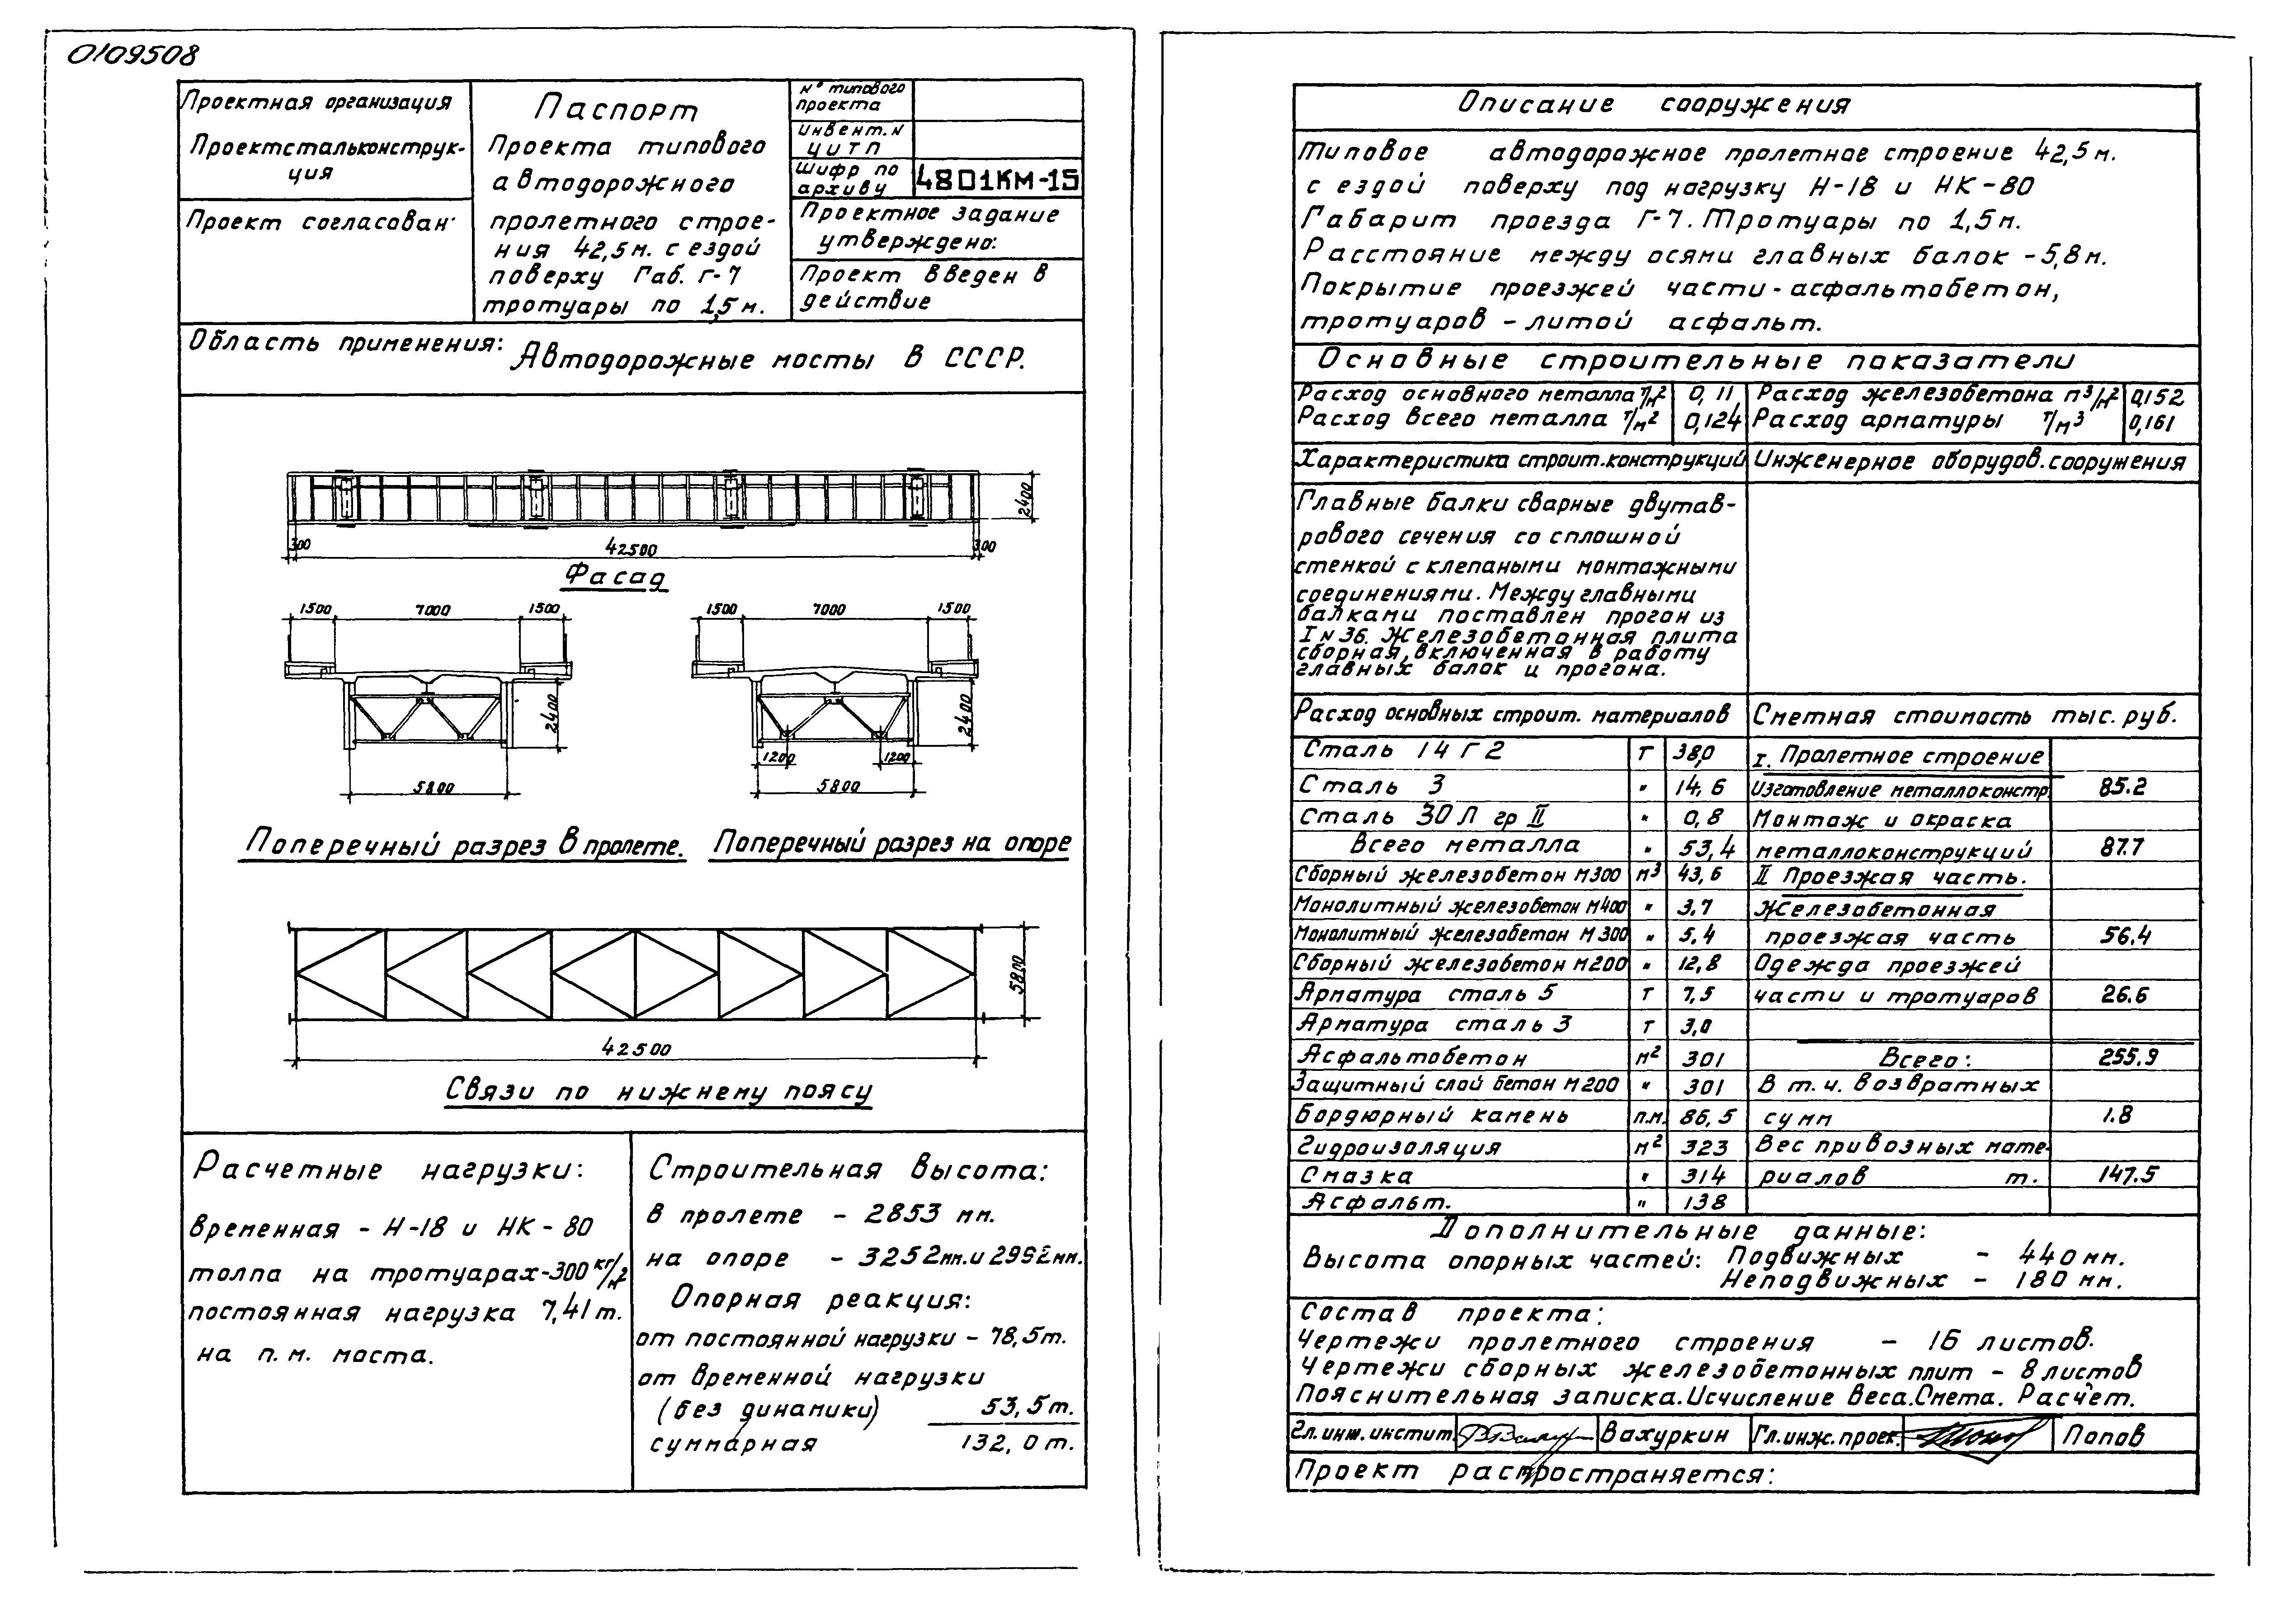 0109508
Проектная организация
Проектстальконструк-
ция
Проект согласован:
Паспорт
Проекта типового
автодорожного
пролетного строе-
ния 42,5м. с ездой
поверху Габ. Г-7
тротуары по 1,5м.
N° типового
проекта
Инвент. N
ЦИТП
Шифр по
архиву
4801КМ-15
Проектное задание
утверждено:
Проект введен в
действие
Область применения: Автодорожные мосты в СССР.
2400
300
42500
300
Фасад
1500 7000 1500
2400
5800
1500 7000 1500
2400
1200 1200
5800
Поперечный разрез в пролете.
Поперечный разрез на опоре
5800
42500
Связи по нижнему поясу
Расчетные нагрузки:
Временная - Н-18 и НК-80
толпа на тротуарах-300 кг/м2
постоянная нагрузка 7,41т.
на п.м. моста.
Строительная высота:
в пролете - 2853 мм.
на опоре - 3252мм. и 2992мм.
Опорная реакция:
от постоянной нагрузки - 78,5т.
от временной нагрузки
(без динамики) 53,5т.
суммарная 132,0т.
Описание сооружения
Типовое автодорожное пролетное строение 42,5м.
с ездой поверху под нагрузку Н-18 и НК-80
Габарит проезда Г-7. Тротуары по 1,5м.
Расстояние между осями главных балок -5,8м.
Покрытие проезжей части - асфальтобетон,
тротуаров - литой асфальт.
Основные строительные показатели
Расход основного металла т/м2 0,11 Расход железобетона м3/м2 0,152
Расход всего металла т/м2 0,124 Расход арматуры т/м3 0,161
Характеристика строит. конструкций Инженерное оборудов. сооружения
Главные балки сварные двутав-
рового сечения со сплошной
стенкой с клепаными монтажными
соединениями. Между главными
балками поставлен прогон из
I N 36. Железобетонная плита
сборная, включенная в работу
главных балок и прогона.
Расход основных строит. материалов Сметная стоимость тыс. руб.
Сталь 14Г2 т 38,0 I. Пролетное строение
Сталь 3 " 14,6 Изготовление металлоконстр. 85.2
Сталь 30Л гр II " 0,8 Монтаж и окраска
Всего металла " 53,4 металлоконструкций 87.7
Сборный железобетон М300 м3 43,6 II Проезжая часть.
Монолитный железобетон М400 " 3,7 Железобетонная
Монолитный железобетон М300 " 5,4 проезжая часть 56.4
Сборный железобетон М200 " 12,8 Одежда проезжей
Арматура сталь 5 т 7,5 части и тротуаров 26.6
Арматура сталь 3 т 3,0
Асфальтобетон м2 301 Всего: 255.9
Защитный слой бетон М200 " 301 В т.ч. возвратных
Бордюрный камень п.м. 86,5 сумм 1.8
Гидроизоляция м2 323 Вес привозных мате-
Смазка " 314 риалов т. 147.5
Асфальт. " 138
Дополнительные данные:
Высота опорных частей: Подвижных - 440 мм.
Неподвижных - 180 мм.
Состав проекта:
Чертежи пролетного строения - 16 листов.
Чертежи сборных железобетонных плит - 8 листов
Пояснительная записка. Исчисление веса. Смета. Расчет.
Гл. инж. институт. Вахуркин Гл. инж. проек. Попов
Проект распространяется: